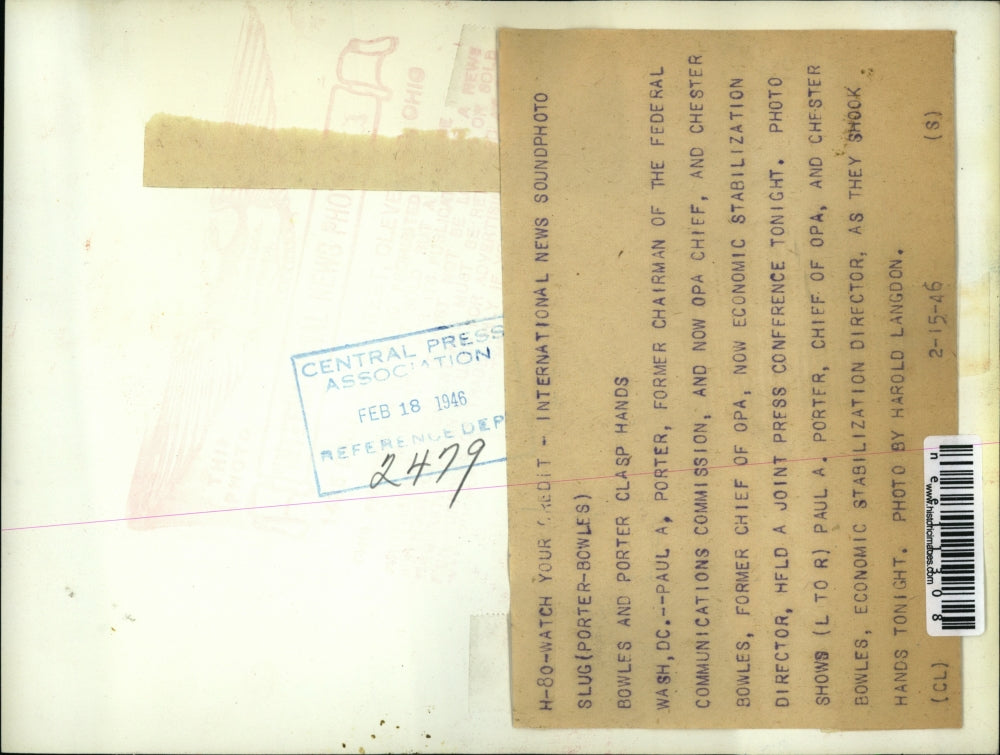 H-80-WATCH YOUR CREDIT - INTERNATIONAL NEWS SOUNDPHOTO
SLUG(PORTER-BOWLES)
BOWLES AND PORTER CLASP HANDS
WASH,DC.--PAUL A, PORTER, FORMER CHAIRMAN OF THE FEDERAL
COMMUNICATIONS COMMISSION, AND NOW OPA CHIEF, AND CHESTER
BOWLES, FORMER CHIEF OF OPA, NOW ECONOMIC STABILIZATION
DIRECTOR, HFLD A JOINT PRESS CONFFRENCE TONIGHT. PHOTO
SHOWS (L TO R) PAUL A. PORTER, CHIEF OF OPA, AND CHESTER
BOWLES, ECONOMIC STABILIZATION DIRECTOR, AS THEY SHOOK
HANDS TONIGHT. PHOTO BY HAROLD LANGDON.
(CL) 2-15-46 (S)
CENTRAL PRESS
ASSOCIATION
FEB 18 1946
REFERENCE DEP
2479
www.historicimages.com
OHIO
NEWS PHO
THIS